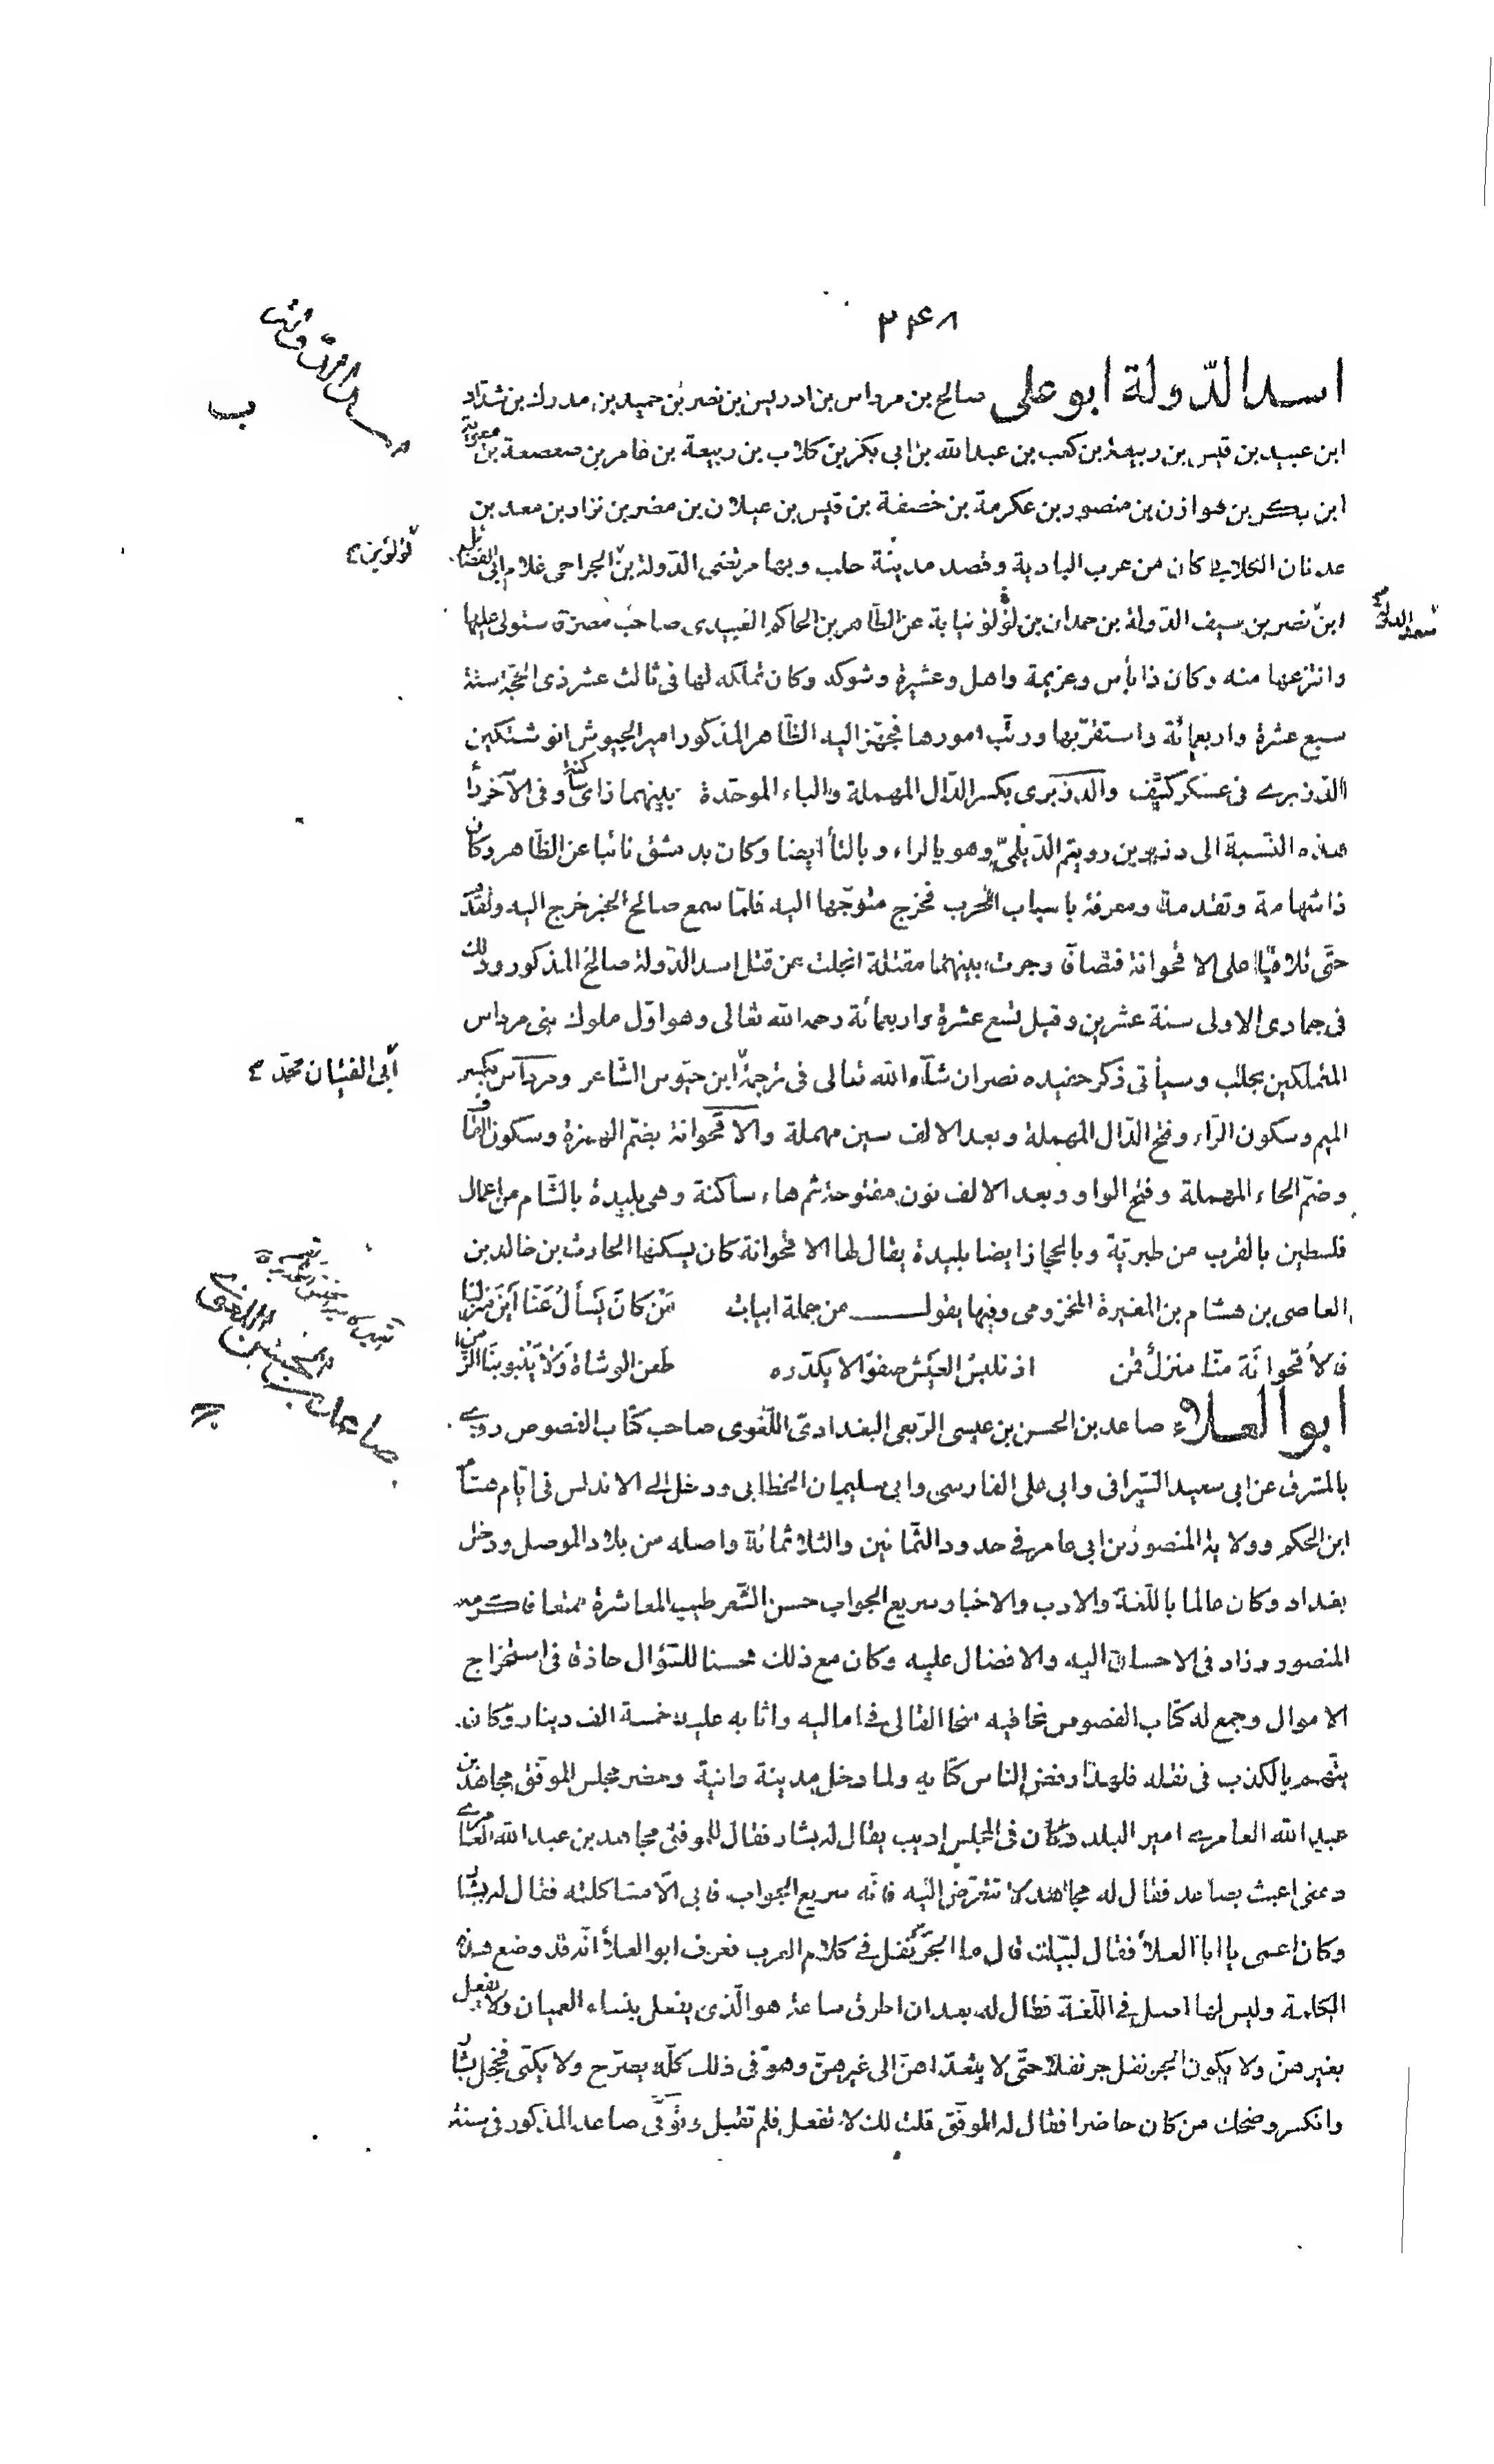 ٢٤٨
اسد الدّولة ابو علی صالح بن مرداس بن ادريس بن نصر بن حميد بن مدرك بن شدّاد
ابن عبيد بن قيس بن ربيعة بن كعب بن عبد الله بن ابی بكر بن كلاب بن ربيعة بن عامر بن صعصعة بن معوية
ابن بكر بن هوازن بن منصور بن عكرمة بن خصفة بن قيس بن عيلان بن مضر بن نزار بن معد بن
عدنان الكلابے كان من عرب البادية وقصد مدينة حلب وبها مرتضى الدّولة بن الجراحى غلام ابى الفضائل
لؤلؤ بن
ابن نصر بن سيف الدّولة بن حمدان بن لؤلؤ نيابة عن الظّاهر بن الحاكم العبيدى صاحب مصر فاستولى عليها
سعد الدولة
وانتزعها منه وكان ذا بأس وعزيمة واهل وعشيرة وشوكه وكان تملّكه لها فى ثالث عشر ذى الحجّة سنة
سبع عشرة واربعمائة واستقرّ بها ورتّب امورها فجهّز اليه الظّاهر المذكور امير الجيوش انوشتكين
الدّزبرے فى عسكر كثيف والدّزبرى بكسر الدّال المهملة والباء الموحّدة بينهما زاى ساكنة وفى الآخر راء
هذه النّسبة الى دزبر بن رويتم الدّيلمىّ وهو بالراء وبالتاء ايضا وكان بدمشق نائبا عن الظّاهر وكان
ذا شهامة وتقدمة ومعرفة باسباب الحرب فخرج متوجّها اليه فلمّا سمع صالح الخبر خرج اليه وتقدّم
حتّى تلاقيا على الاقحوانة فتصافّا وجرت بينهما مقتلة انجلت عن قتل اسد الدّولة صالح المذكور وذلك
فى جمادى الاولى سنة عشرين وقيل تسع عشرة واربعمائة رحمه الله تعالى وهو اوّل ملوك بنى مرداس
المتملكين بحلب وسيأتى ذكر حفيده نصر ان شآء الله تعالى فى ترجمة ابن حيّوس الشّاعر ومرداس بكسر
أبى الفتيان محمّد
الميم وسكون الرّاء وفتح الدّال المهملة وبعد الالف سين مهملة والاقحوانة بضمّ الهمزة وسكون القاف
وضمّ الحاء المهملة وفتح الواو وبعد الالف نون مفتوحة ثم هاء ساكنة وهى بليدة بالشّام من اعمال
فلسطين بالقرب من طبريّة وبالحجاز ايضا بليدة يقال لها الاقحوانة كان يسكنها الحارث بن خالد بن
العاصى بن هشام بن المغيرة المخزومى وفيها يقول من جملة ابيات مَنْ كَانَ يَسألُ عَنّا أَيْنَ مَنْزِلُنا
فالأقحوانَة منّا منزلٌ قمن اذ نلبسُ العَيْش صفوًا لا يكدّره طَعن الوشاة وَلَا يَنْبو بنَا الزّمن
ابو العلاء صاعد بن الحسن بن عيسى الرّبعى البغدادىّ اللّغوى صاحب كتاب الفصوص روے
بالمشرق عن ابى سعيد السّيرافى وابى على الفارسى وابى سليمان الخطابى ودخل الے الاندلس فى ايّام هشام
ابن الحكم وولاية المنصور بن ابى عامر فے حدود الثّمانين والثلاثمائة واصله من بلاد الموصل ودخل
بغداد وكان عالما باللّغة والادب والاخبار سريع الجواب حسن الشّعر طيب المعاشرة ممتعا فاكرمه
المنصور وزاد فى الاحسان اليه والافضال عليه وكان مع ذلك محسنا للسّؤال حاذقا فى استخراج
الاموال وجمع له كتاب الفصوص نحا فيه منحا القالى فے اماليه واثابه عليه خمسة الف دينار وكان
يتّهم بالكذب فى نقله فلهذا رفض النّاس كتابه ولما دخل مدينة دانية وحضر مجلس الموفّق مجاهد بن
عبد الله العامرے امير البلد وكان فى المجلس اديب يقال له بشار فقال للموفق مجاهد بن عبد الله العامرے
دعنى اعبث بصاعد فقال له مجاهد لا تتعرّض اليه فانّه سريع الجواب فابى الّا مشاكلته فقال له بشار
وكان اعمى يا ابا العلاء فقال لبيّك قال ما الجرنفل فے كلام العرب فعرف ابو العلاء انّه قد وضع هذه
الكلمة وليس لها اصل فے اللّغة فقال له بعد ان اطرق ساعة هو الّذى يفعل بنساء العميان ولا يفعل
بغيرهنّ ولا يكون الجرنفل جرنفلا حتّى لا يتعدّاهنّ الى غيرهنّ وهو فى ذلك كلّه يصرّح ولا يكنى فخجل بشار
وانكسر وضحك من كان حاضرا فقال له الموفّق قلت لك لا تفعل فلم تقبل وتوفّى صاعد المذكور فى سنة
اسد الدّولة
ب
صاعد بن الحسن اللغوى
ج